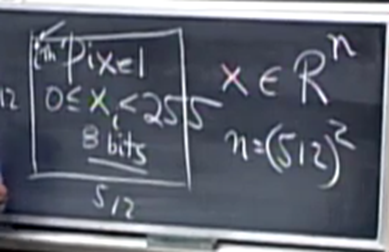 ith pixel
0 ≤ xᵢ < 255
8 bits
512
12
x ∈ Rⁿ
n = (512)²